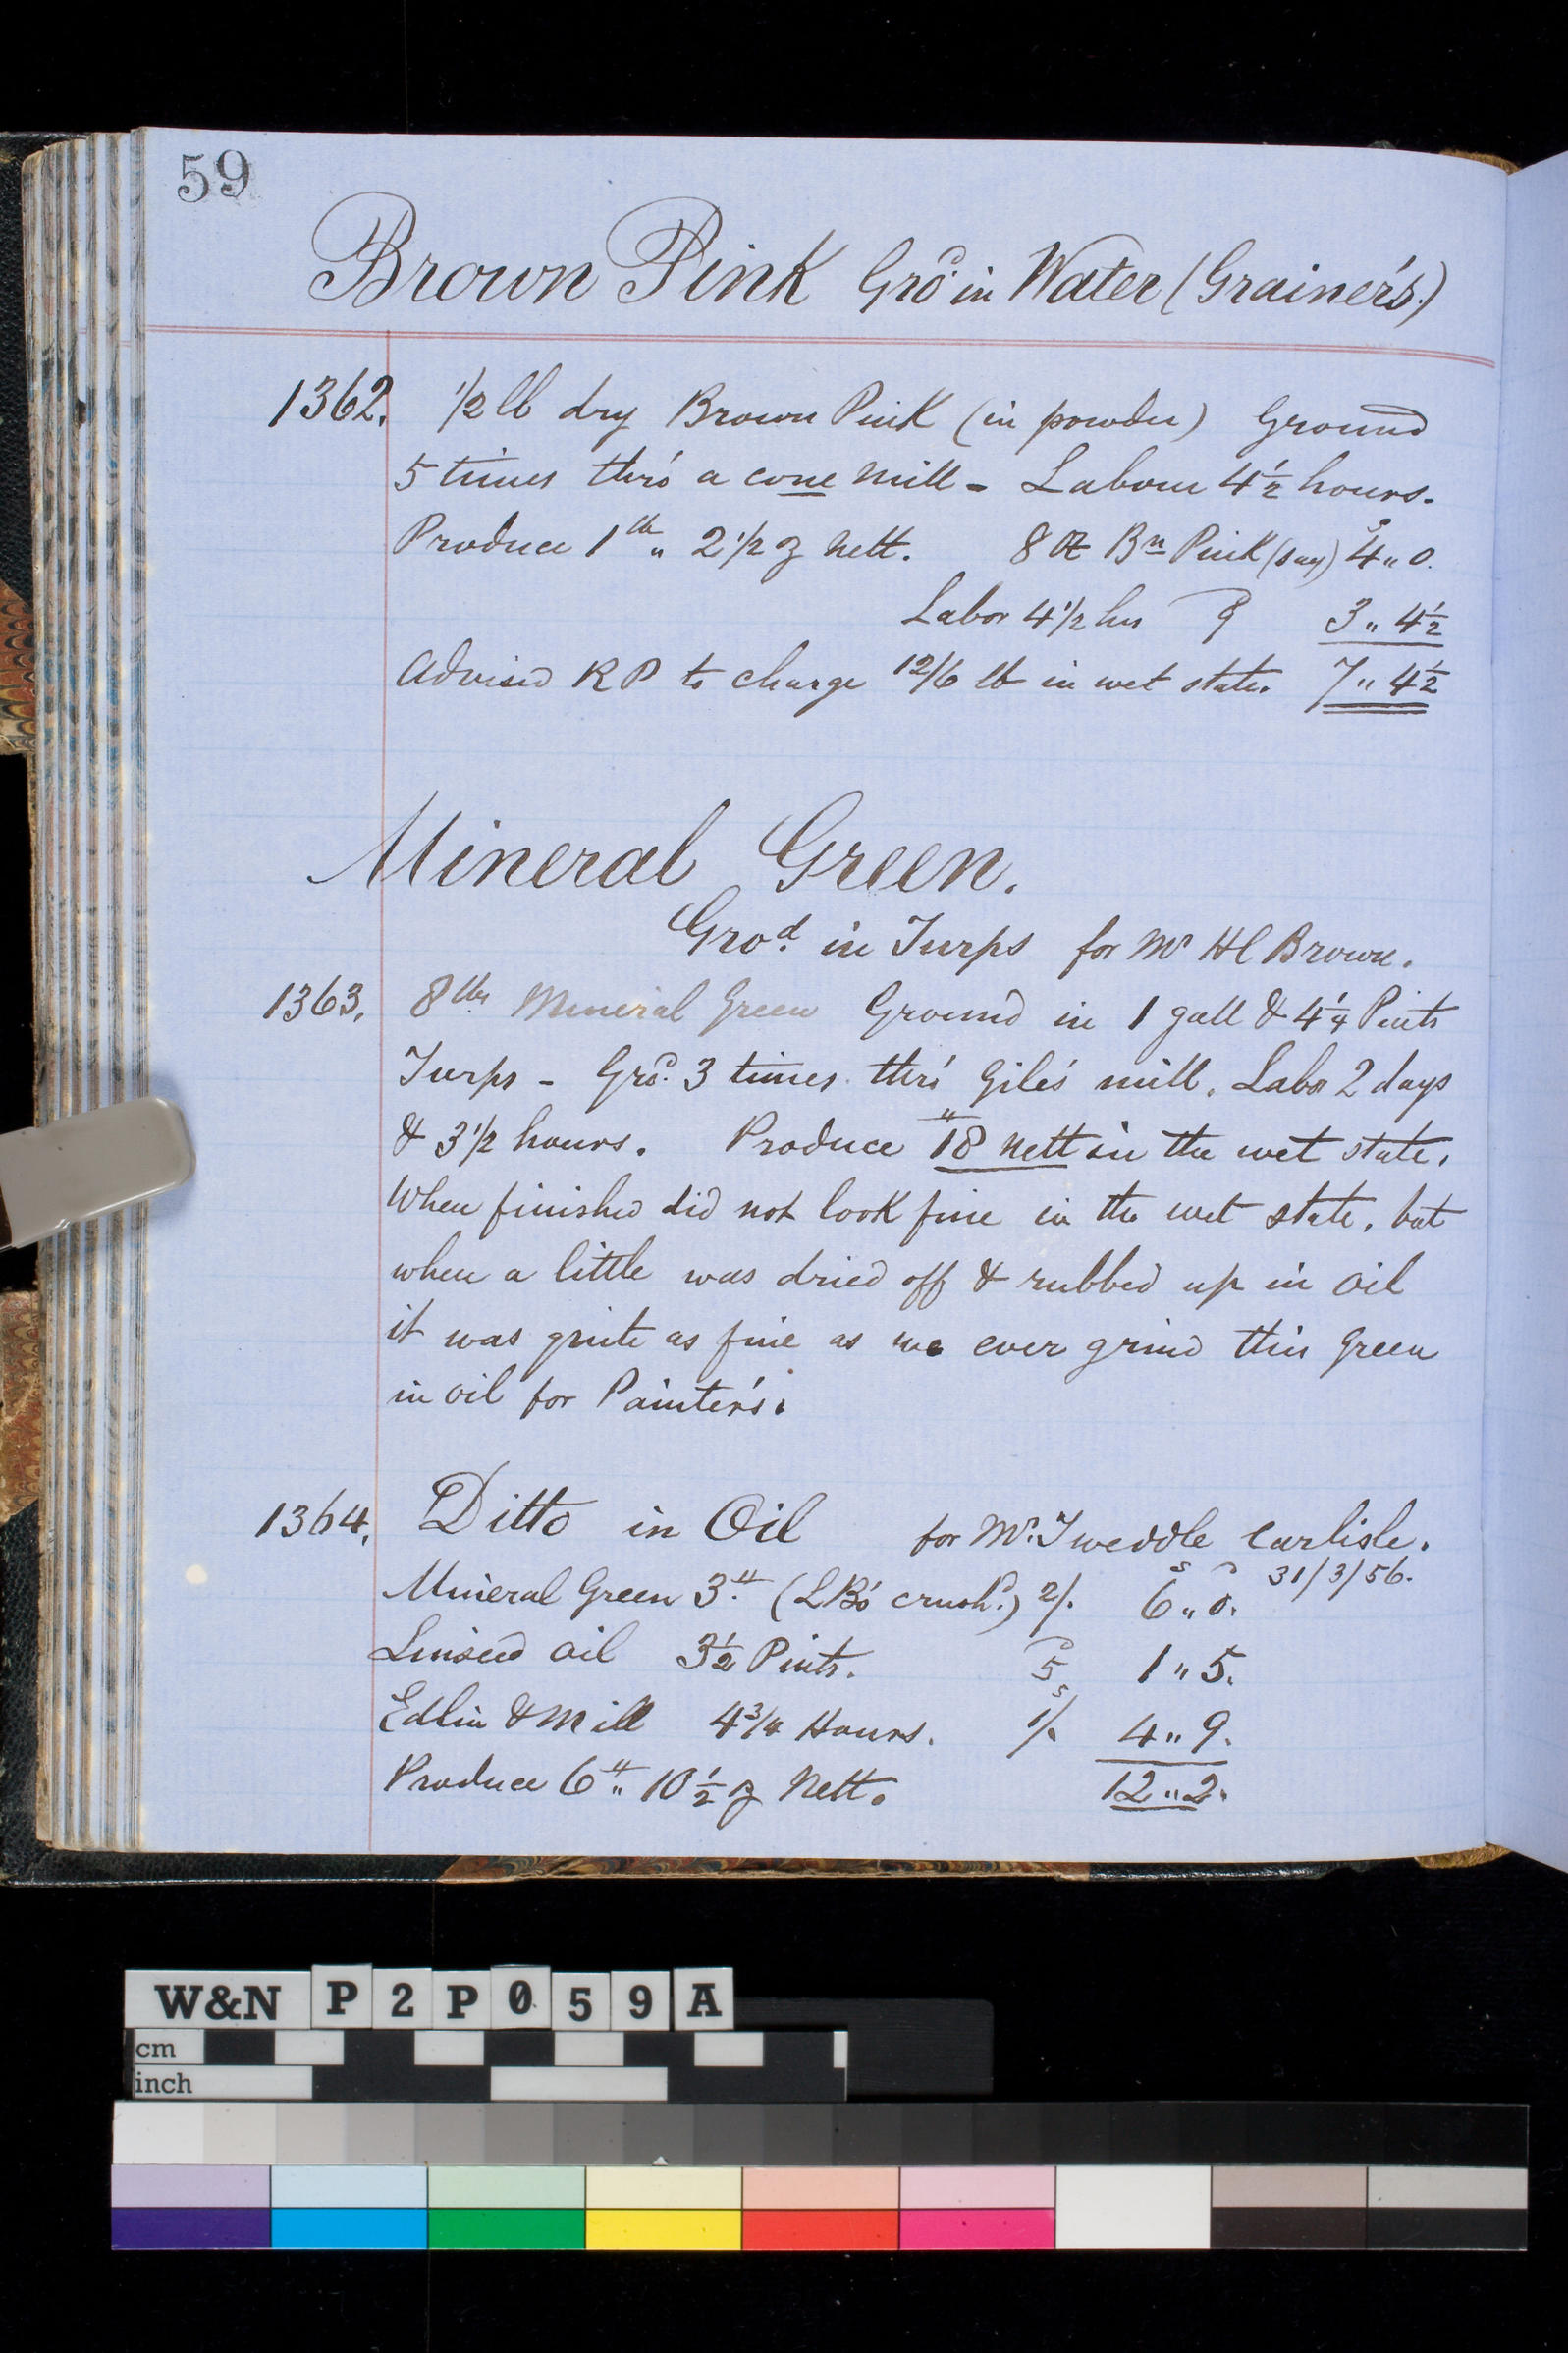 59
Brown Pink Gro.d in Water (Grainer's.)
1362. 1/2 lb dry Brown Pink (in powder) Ground
5 times thro' a cone Mill - Labour 4 1/2 hours.
Produce 1 lb " 2 1/2 oz nett. 8 oz Bn Pink (say) 4 s " 0.
Labor 4 1/2 hrs 9 d 3 " 4 1/2
Advised RP to charge 12/6 lb in wet state. 7 " 4 1/2
Mineral Green.
Gro.d in Turps for Mr HC Brown.
1363. 8 lbs Mineral Green Ground in 1 gall & 4 1/4 Pints
Turps - Gro.d 3 times thro' Gile's mill. Labor 2 days
& 3 1/2 hours. Produce 18 lb nett in the wet state.
When finished did not look fine in the wet state, but
when a little was dried off & rubbed up in oil
it was quite as fine as we ever grind this Green
in oil for Painter's.
1364. Ditto in Oil for Mr. Tweddle Carlisle.
31/3/56.
Mineral Green 3 lb. (LB's crush.d) 2/. 6 s " 0 d.
Linseed oil 3 1/2 Pints. 5 d 1 " 5.
Edlin & Mill 4 3/4 Hours. 1 s/. 4 " 9.
Produce 6 lb " 10 1/2 oz Nett. 12 " 2.
W&N P2P059A
cm
inch